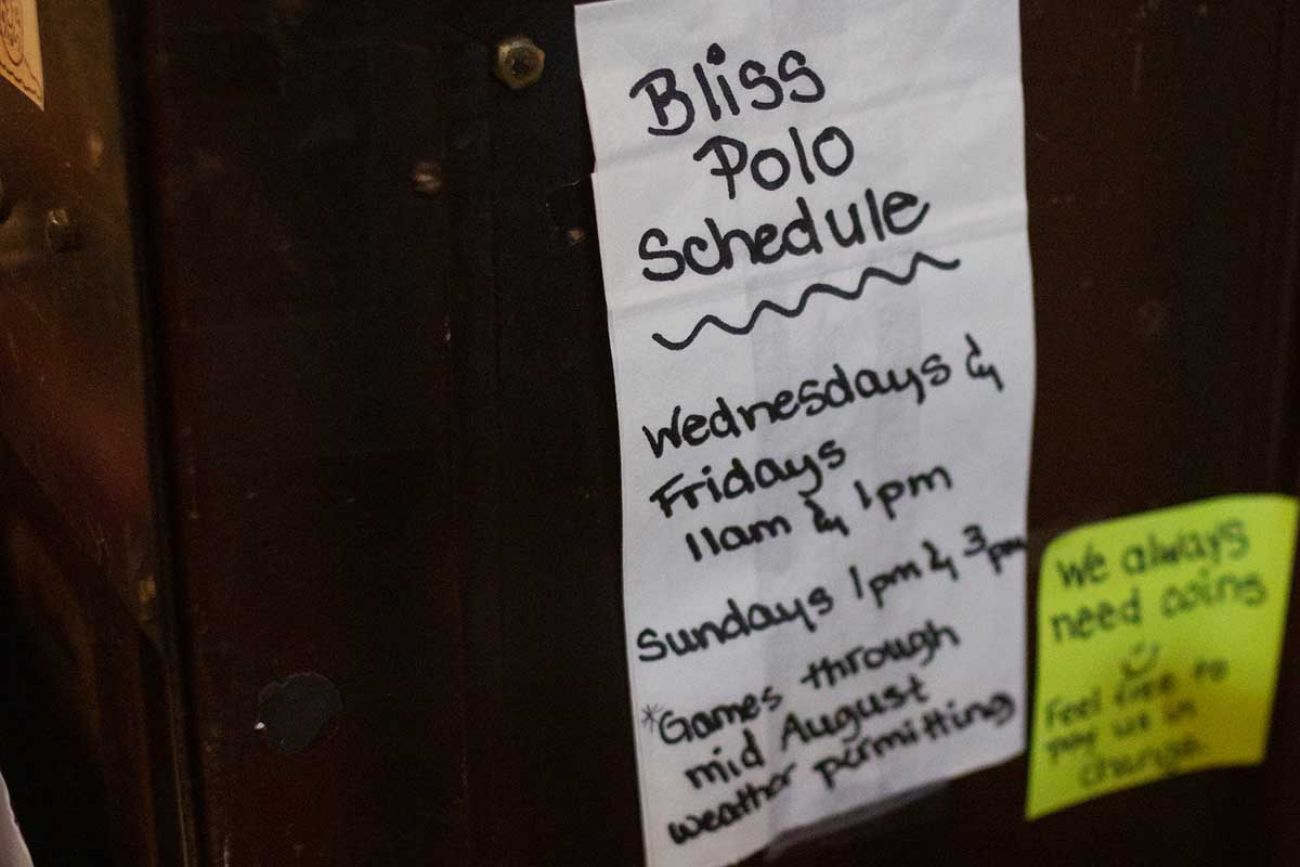 Bliss
Polo
Schedule
Wednesdays &
Fridays
11am & 1pm
Sundays 1pm & 3pm
*Games through
mid August
weather permitting
We always
need coins
Feel free to
pay us in
change.